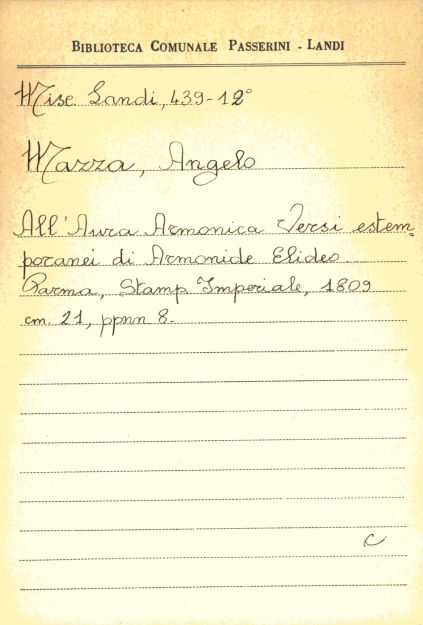 BIBLIOTECA COMUNALE PASSERINI - LANDI
Misc. Landi, 439-12°
Mazza, Angelo
All'Aura Armonica Versi estem-
poranei di Armonide Elideo
Parma, Stamp. Imperiale, 1809
cm. 21, ppnn 8.
C